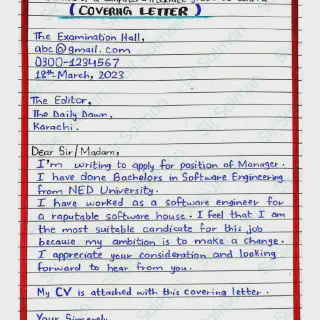 ( COVERING LETTER )
The Examination Hall,
abc@gmail.com
0300-1234567
18th March, 2023
The Editor,
The Daily Dawn,
Karachi.
Dear Sir/Madam,
I'm writing to apply for position of Manager.
I have done Bachelors in Software Engineering
from NED University.
I have worked as a software engineer for
a raputable software house. I feel that I am
the most suitable candicate for this job
becaus my ambition is to make a change.
I appreciate your consideration and looking
forward to hear from you.
My CV is attached with this covering letter.
Your Sincerely